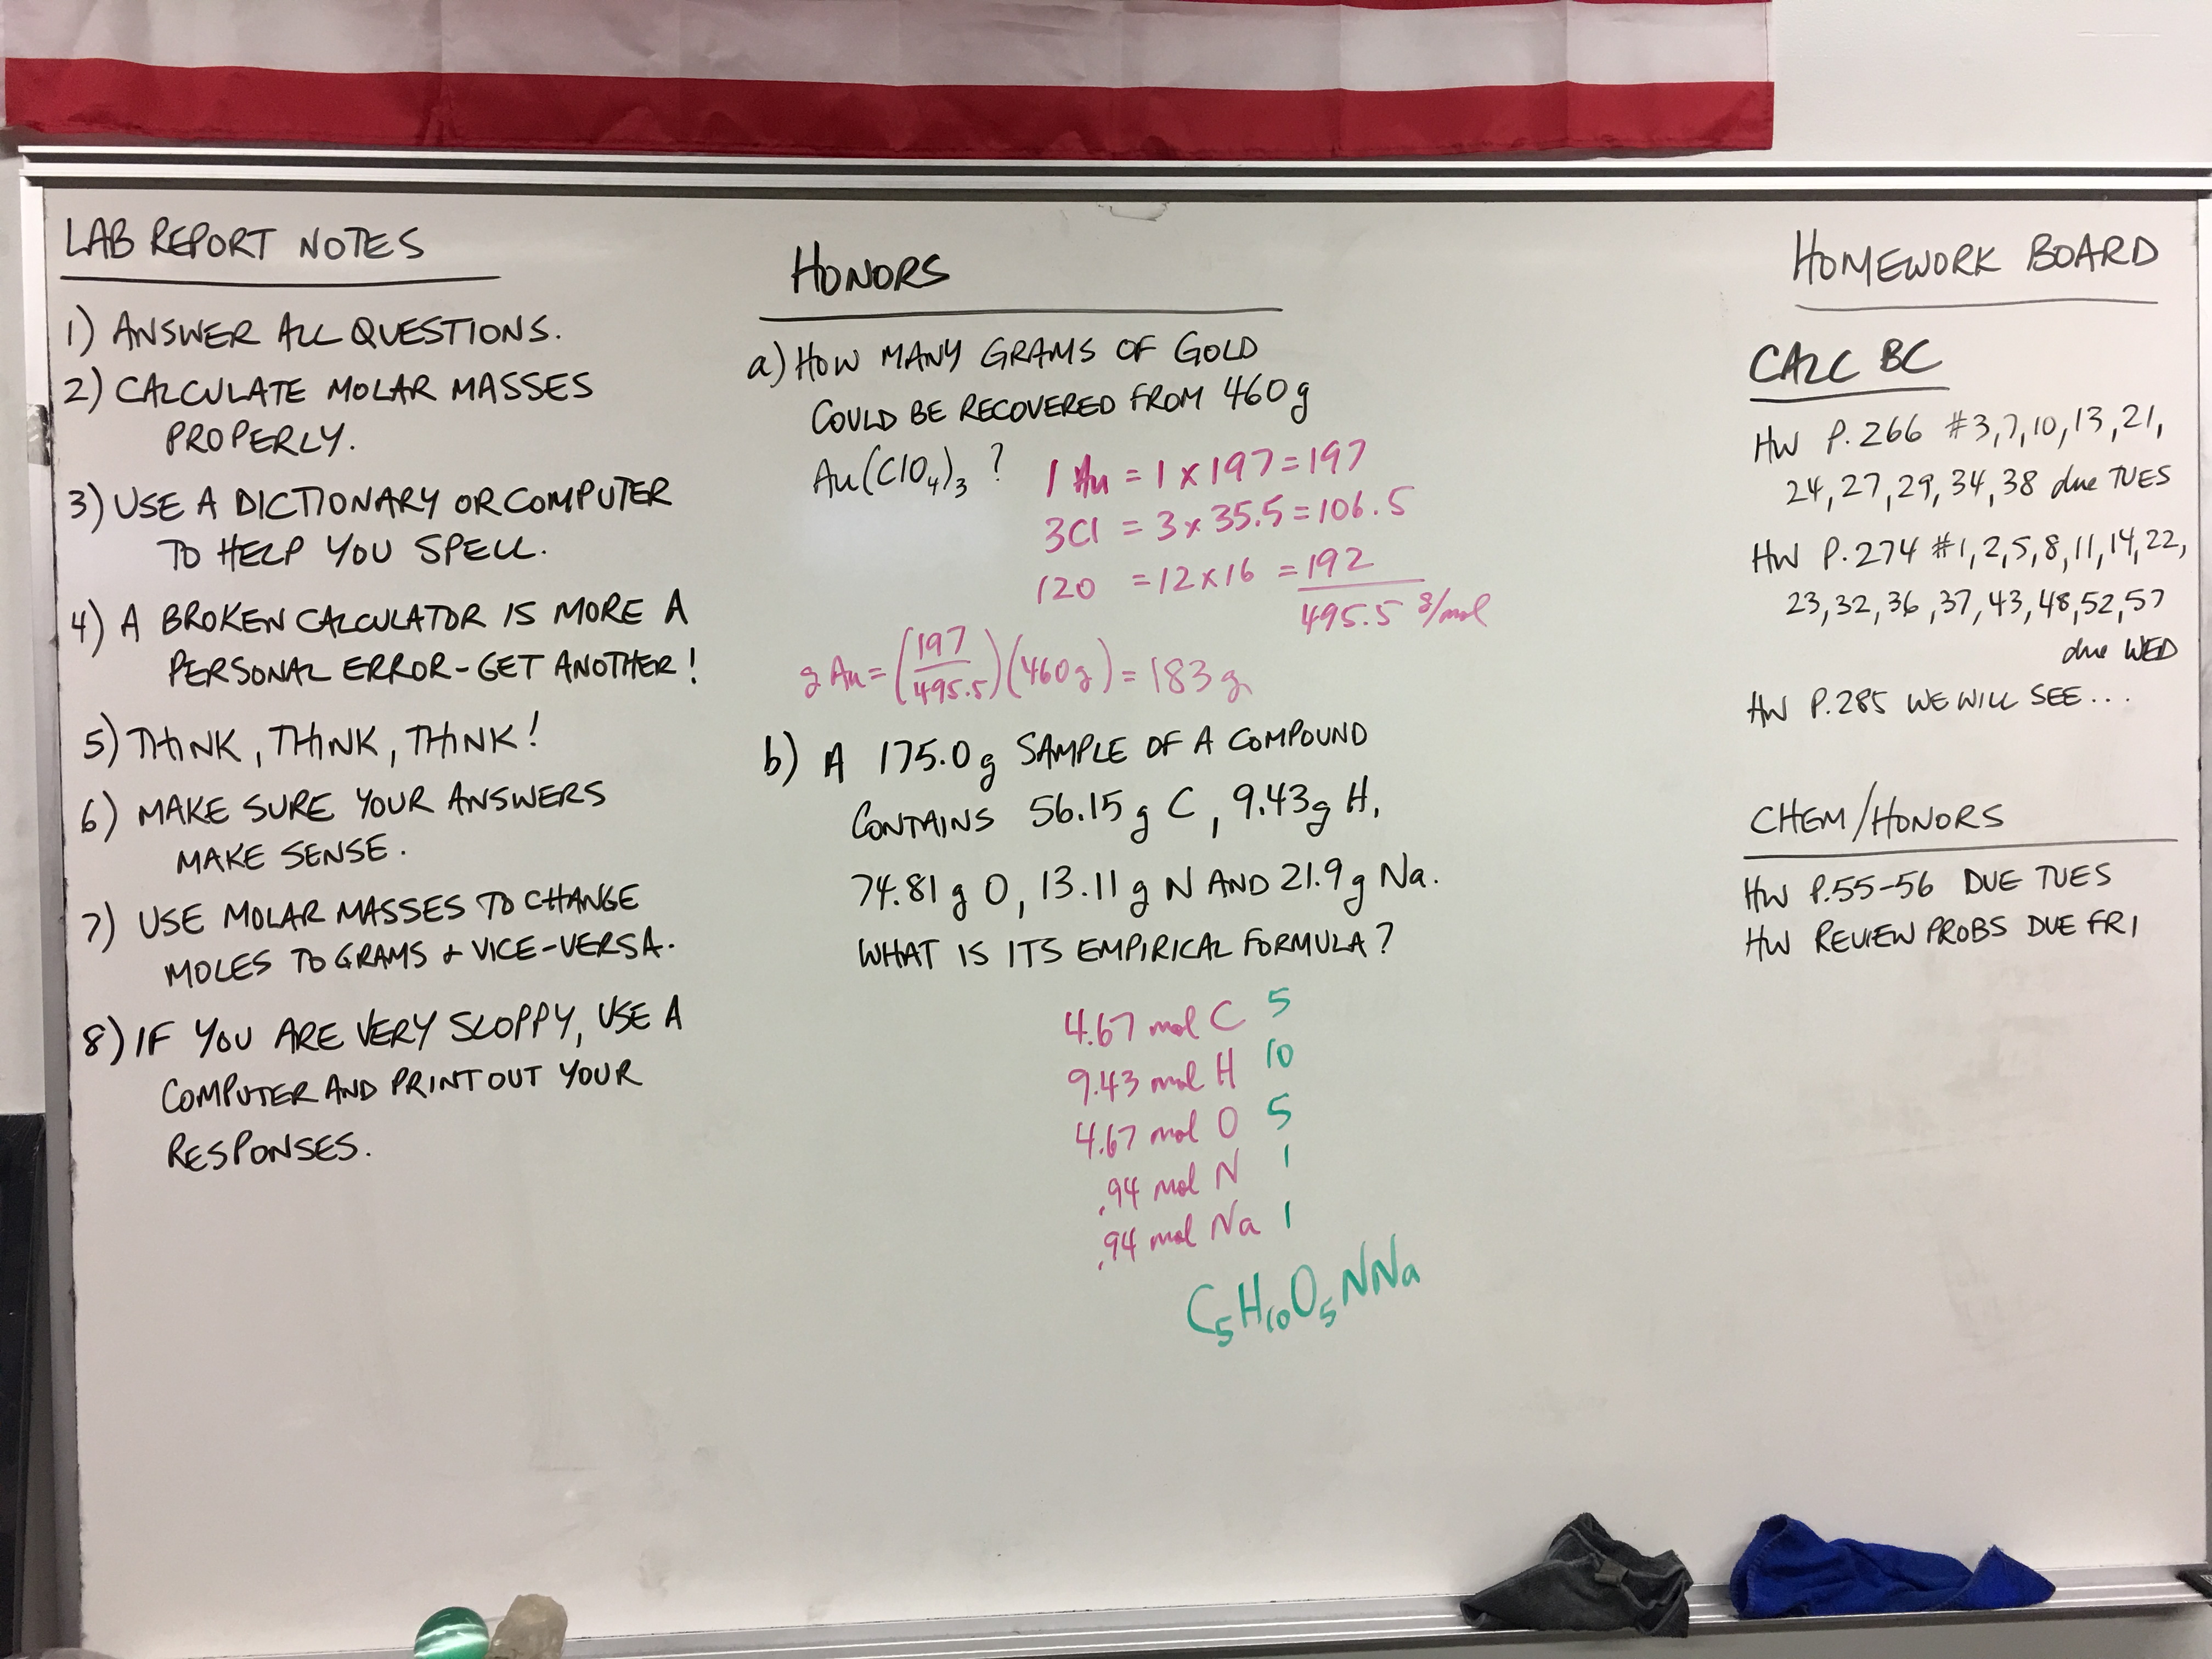 LAB REPORT NOTES
1) ANSWER ALL QUESTIONS.
2) CALCULATE MOLAR MASSES
PROPERLY.
3) USE A DICTIONARY OR COMPUTER
TO HELP YOU SPELL.
4) A BROKEN CALCULATOR IS MORE A
PERSONAL ERROR-GET ANOTHER!
5) THINK, THINK, THINK!
6) MAKE SURE YOUR ANSWERS
MAKE SENSE.
7) USE MOLAR MASSES TO CHANGE
MOLES TO GRAMS & VICE-VERSA.
8) IF YOU ARE VERY SLOPPY, USE A
COMPUTER AND PRINT OUT YOUR
RESPONSES.
HONORS
a) HOW MANY GRAMS OF GOLD
COULD BE RECOVERED FROM 460g
Au(ClO₄)₃ ?
1 Au = 1 x 197 = 197
3Cl = 3 x 35.5 = 106.5
12O = 12 x 16 = 192
495.5 g/mol
g Au = (197/495.5)(460g) = 183g
b) A 175.0g SAMPLE OF A COMPOUND
CONTAINS 56.15g C, 9.43g H,
74.81g O, 13.11g N AND 21.9g Na.
WHAT IS ITS EMPIRICAL FORMULA?
4.67 mol C 5
9.43 mol H 10
4.67 mol O 5
.94 mol N 1
.94 mol Na 1
C₅H₁₀O₅NNa
HOMEWORK BOARD
CALC BC
HW P.266 #3,7,10,13,21,
24,27,29,34,38 due TUES
HW P.274 #1,2,5,8,11,14,22,
23,32,36,37,43,48,52,57
due WED
HW P.285 WE WILL SEE...
CHEM/HONORS
HW P.55-56 DUE TUES
HW REVIEW PROBS DUE FRI